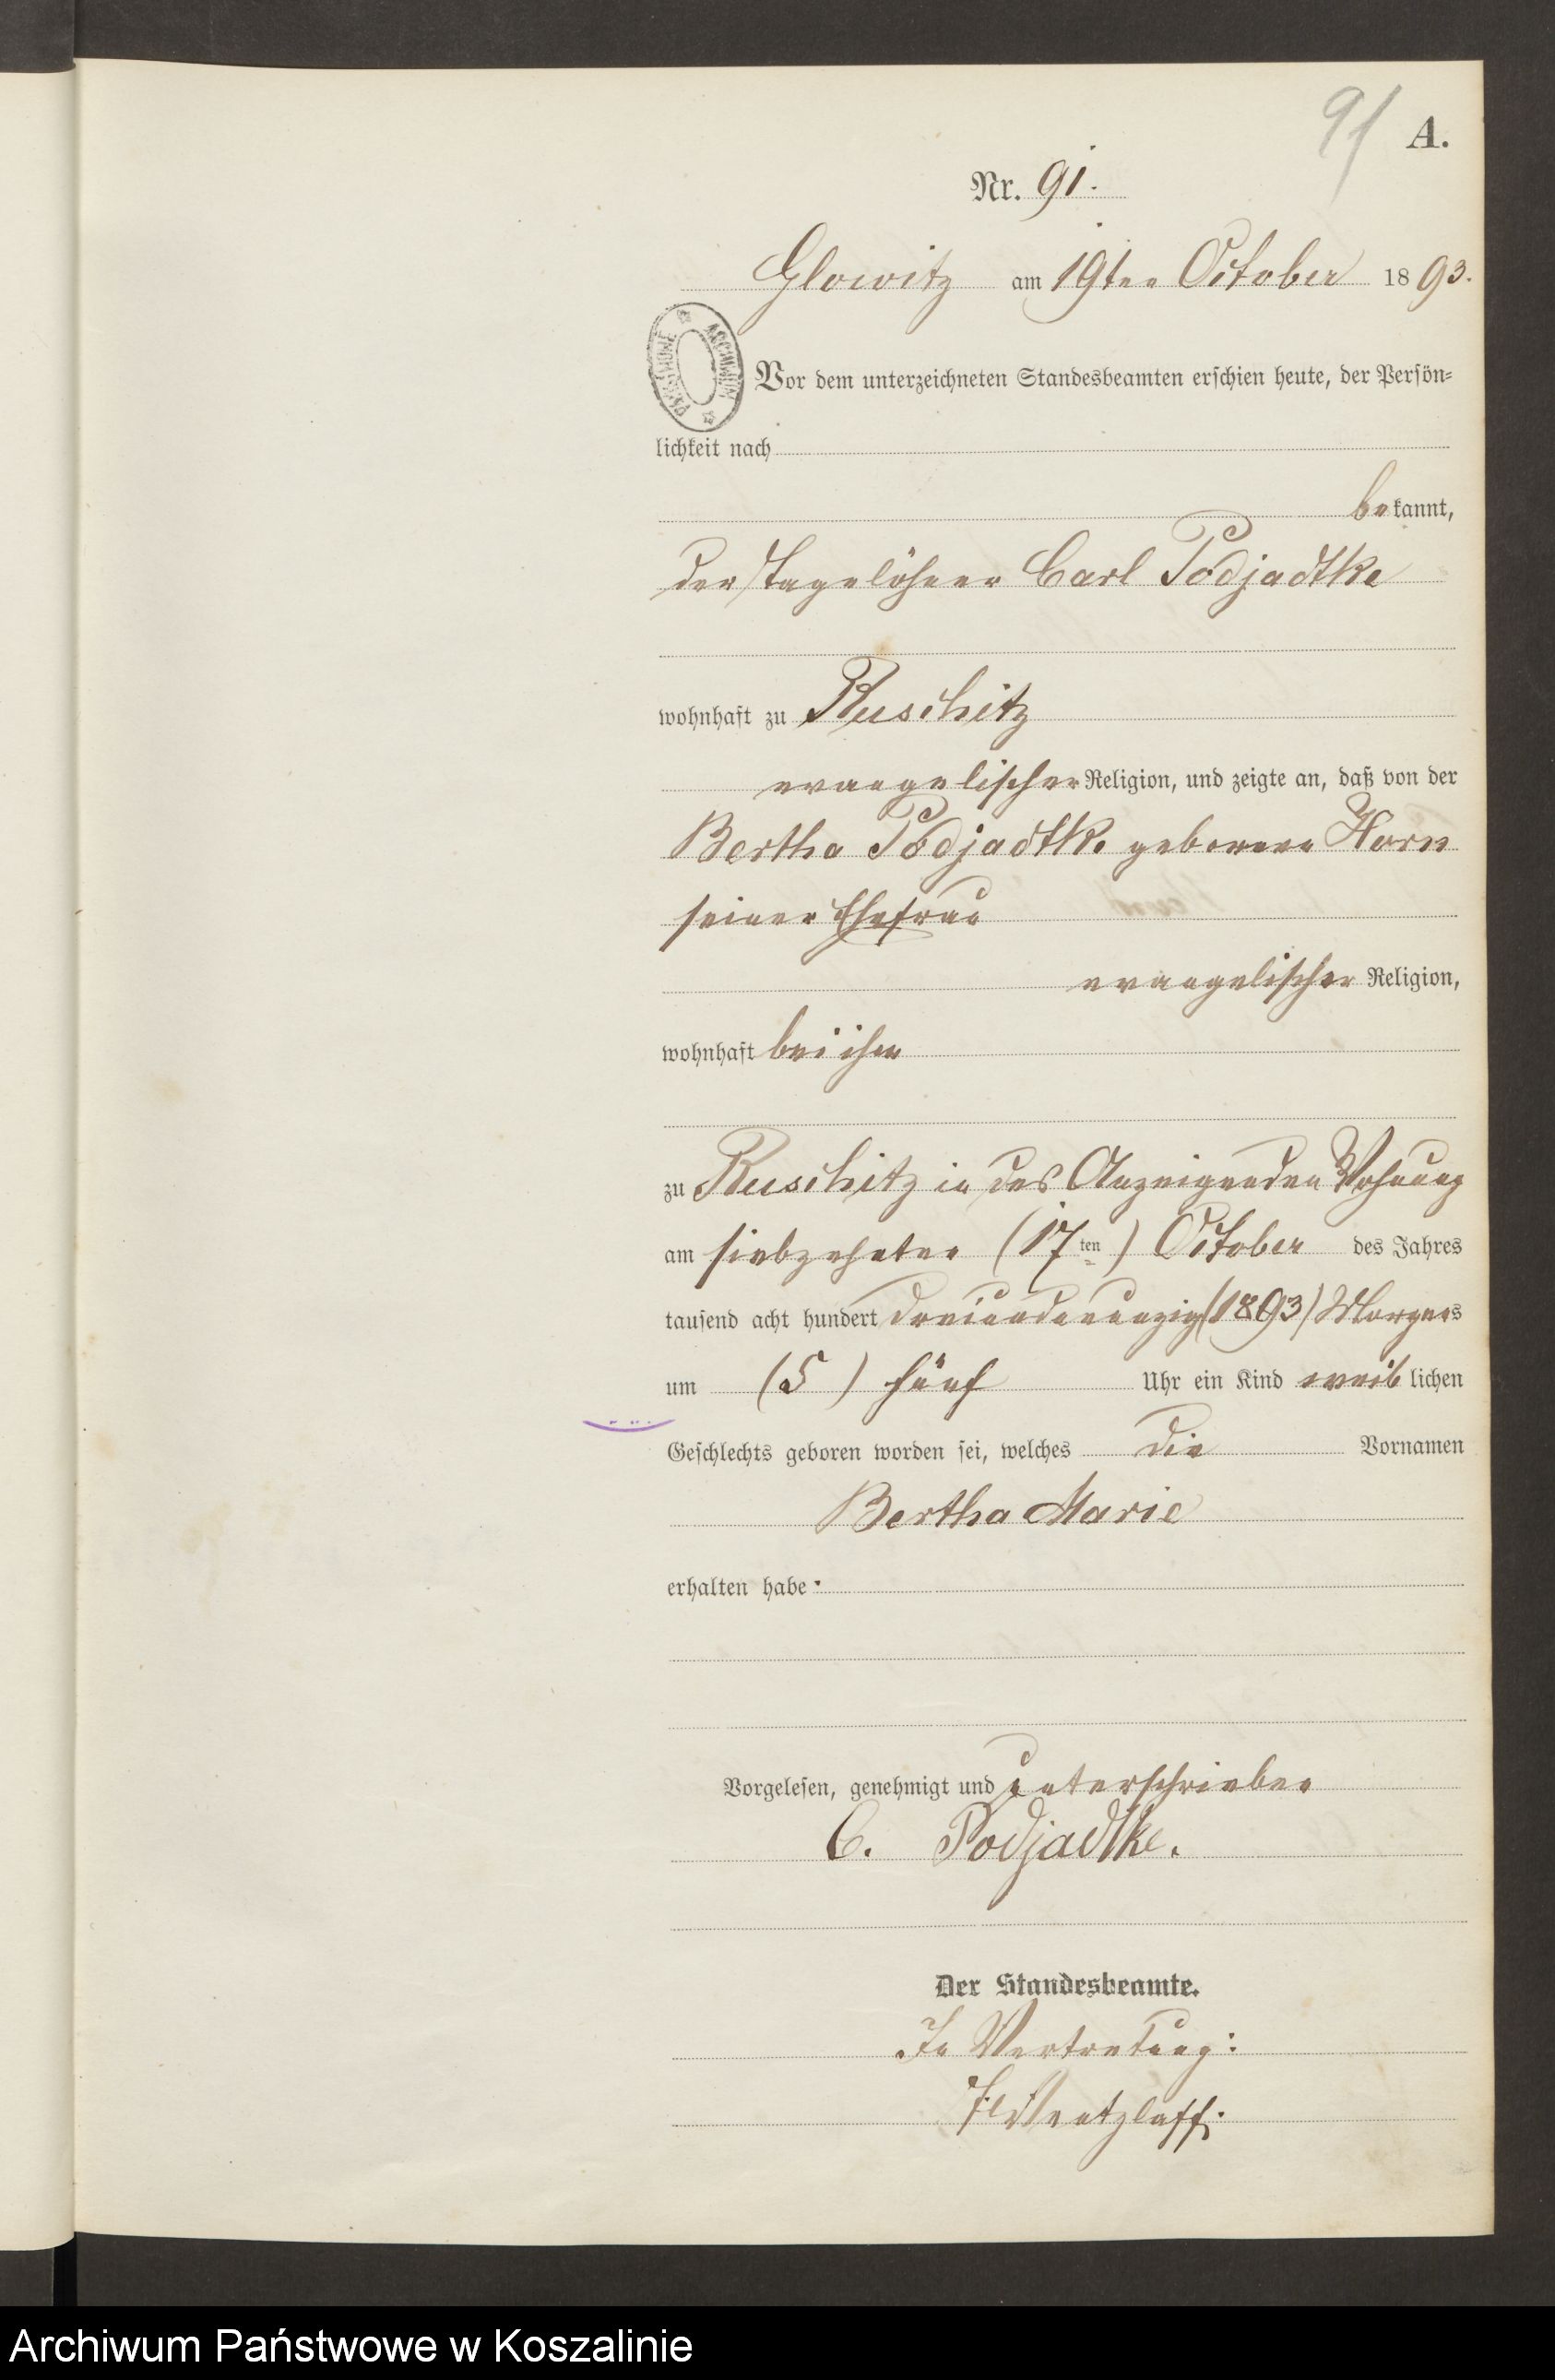 91 A.
Nr. 91.
Glowitz am 19ten October 1893.
ARCHIWUM PAŃSTWOWE
Vor dem unterzeichneten Standesbeamten erschien heute, der Persön-
lichkeit nach
bekannt,
der Tagelöhner Carl Podjadtke
wohnhaft zu Ruschitz
evangelischer Religion, und zeigte an, daß von der
Bertha Podjadtke geborene Horn
seiner Ehefrau
evangelischer Religion,
wohnhaft bei ihm
zu Ruschitz in des Anzeigenden Wohnung
am siebzehnten (17ten) October des Jahres
tausend acht hundert dreiundneunzig (1893) Morgens
um (5) fünf Uhr ein Kind weiblichen
Geschlechts geboren worden sei, welches die Vornamen
Bertha Marie
erhalten habe.
Vorgelesen, genehmigt und unterschrieben
C. Podjadtke.
Der Standesbeamte.
In Vertretung:
Wentzlaff.
Archiwum Państwowe w Koszalinie